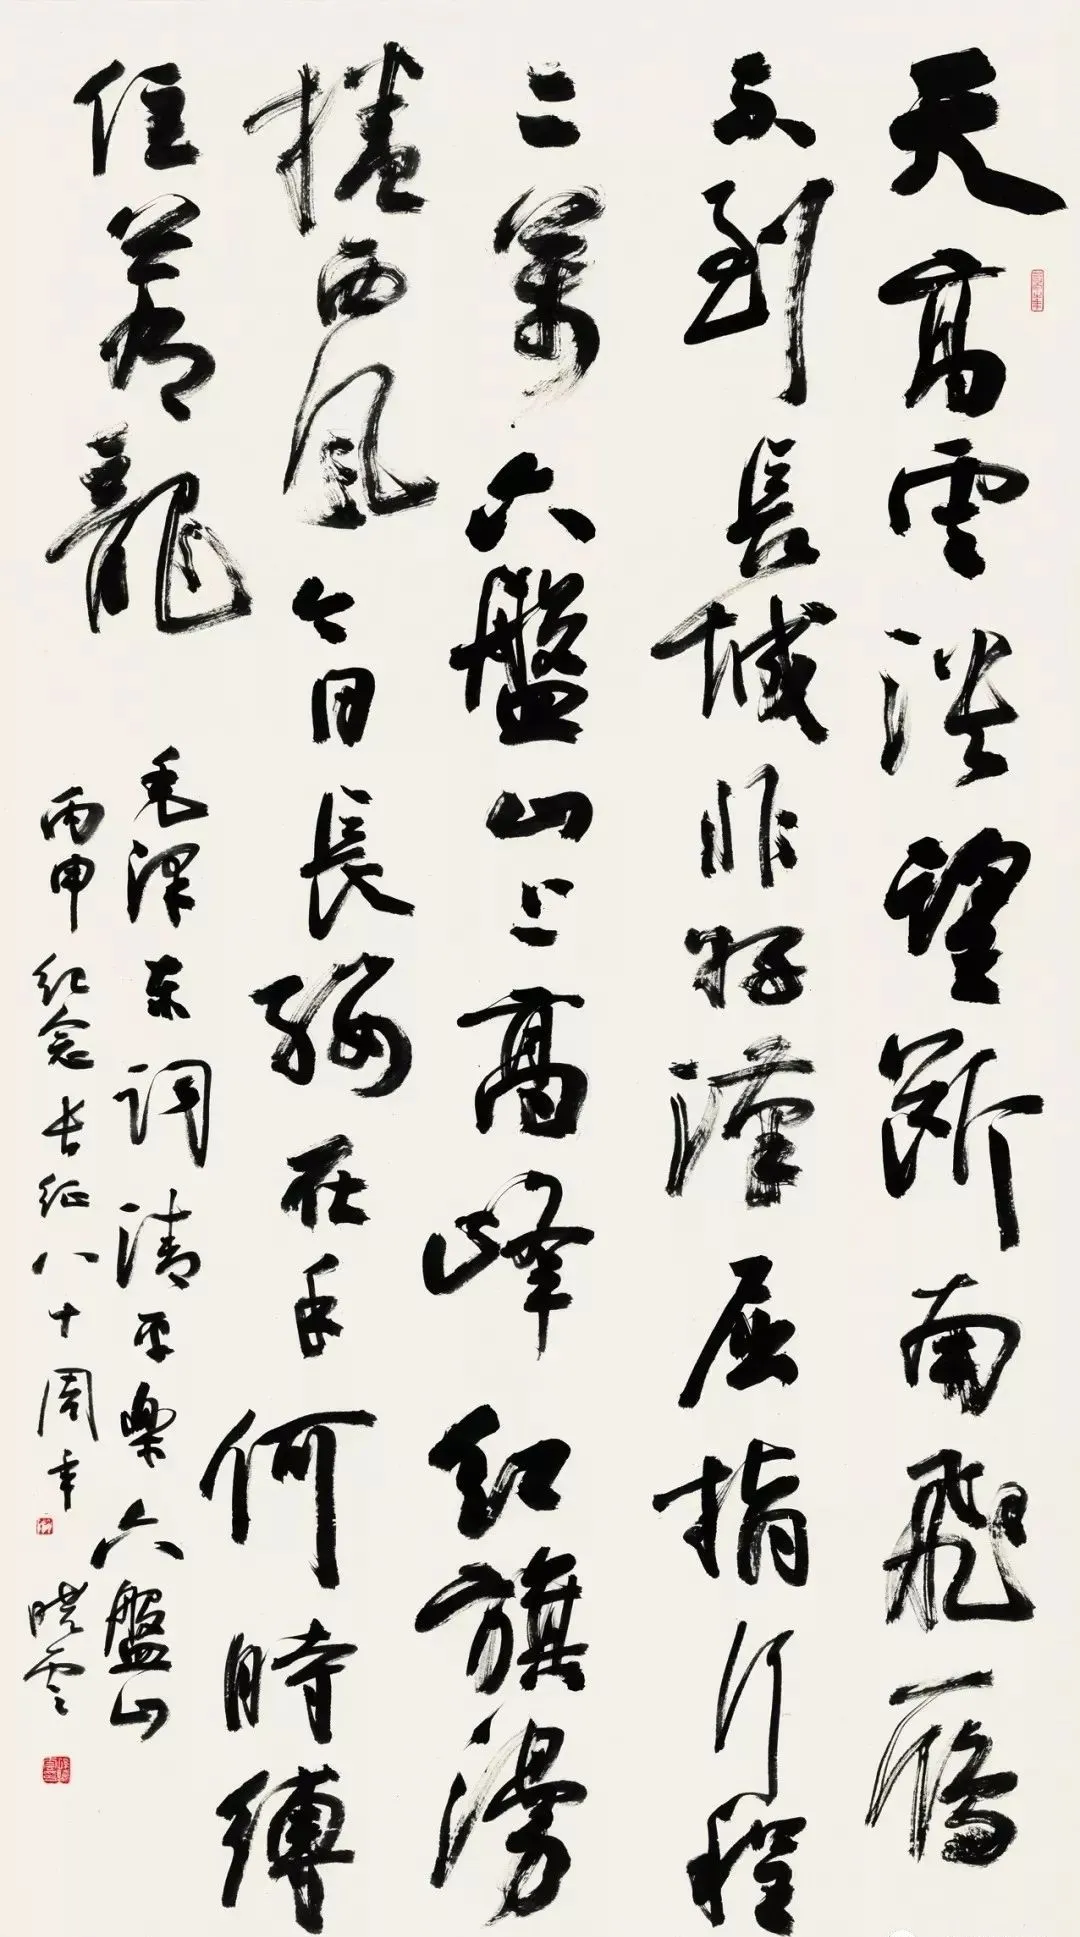 天高雲淡望断南飛雁
不到長城非好漢屈指行程
二萬六盤山上高峰紅旗漫
捲西風今日長纓在手何時縛
住蒼龍
毛澤东词清平樂六盤山
丙申纪念长征八十周年
晓雲